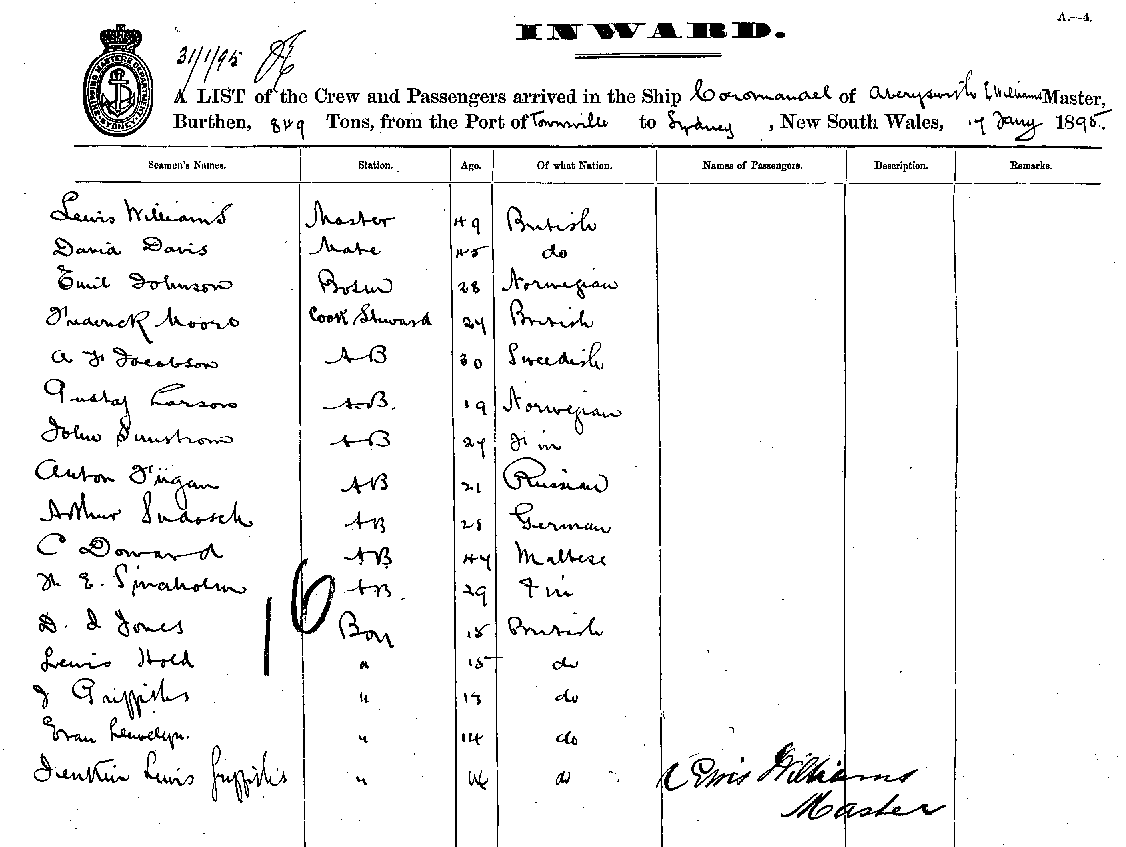 A.—4.
INWARD.
31/1/95
A LIST of the Crew and Passengers arrived in the Ship Coromandel of Aberystwith L Williams Master,
Burthen, 849 Tons, from the Port of Townville to Sydney, New South Wales, 17 Jany 1895.
Seamen's Names. Station. Age. Of what Nation. Names of Passengers. Description. Remarks.
Lewis Williams Master 49 British
David Davis Mate 45 do
Emil Johnson Bosun 28 Norwegian
Frederick Moore Cook Steward 24 British
A F Jacobson AB 30 Swedish
Gustaf Larson A.B. 19 Norwegian
John Sunstrom AB 27 Fin
Anton AB 21 Russian
Arthur AB 28 German
C Doward AB 44 Maltese
E. AB. 29 Fin
16
D. J Jones Boy 15 British
Lewis Hold " 15 do
J Griffiths " 13 do
Evan Llewelyn. " 14 do
Jenkin Lewis Griffiths " do
Lewis Williams
Master